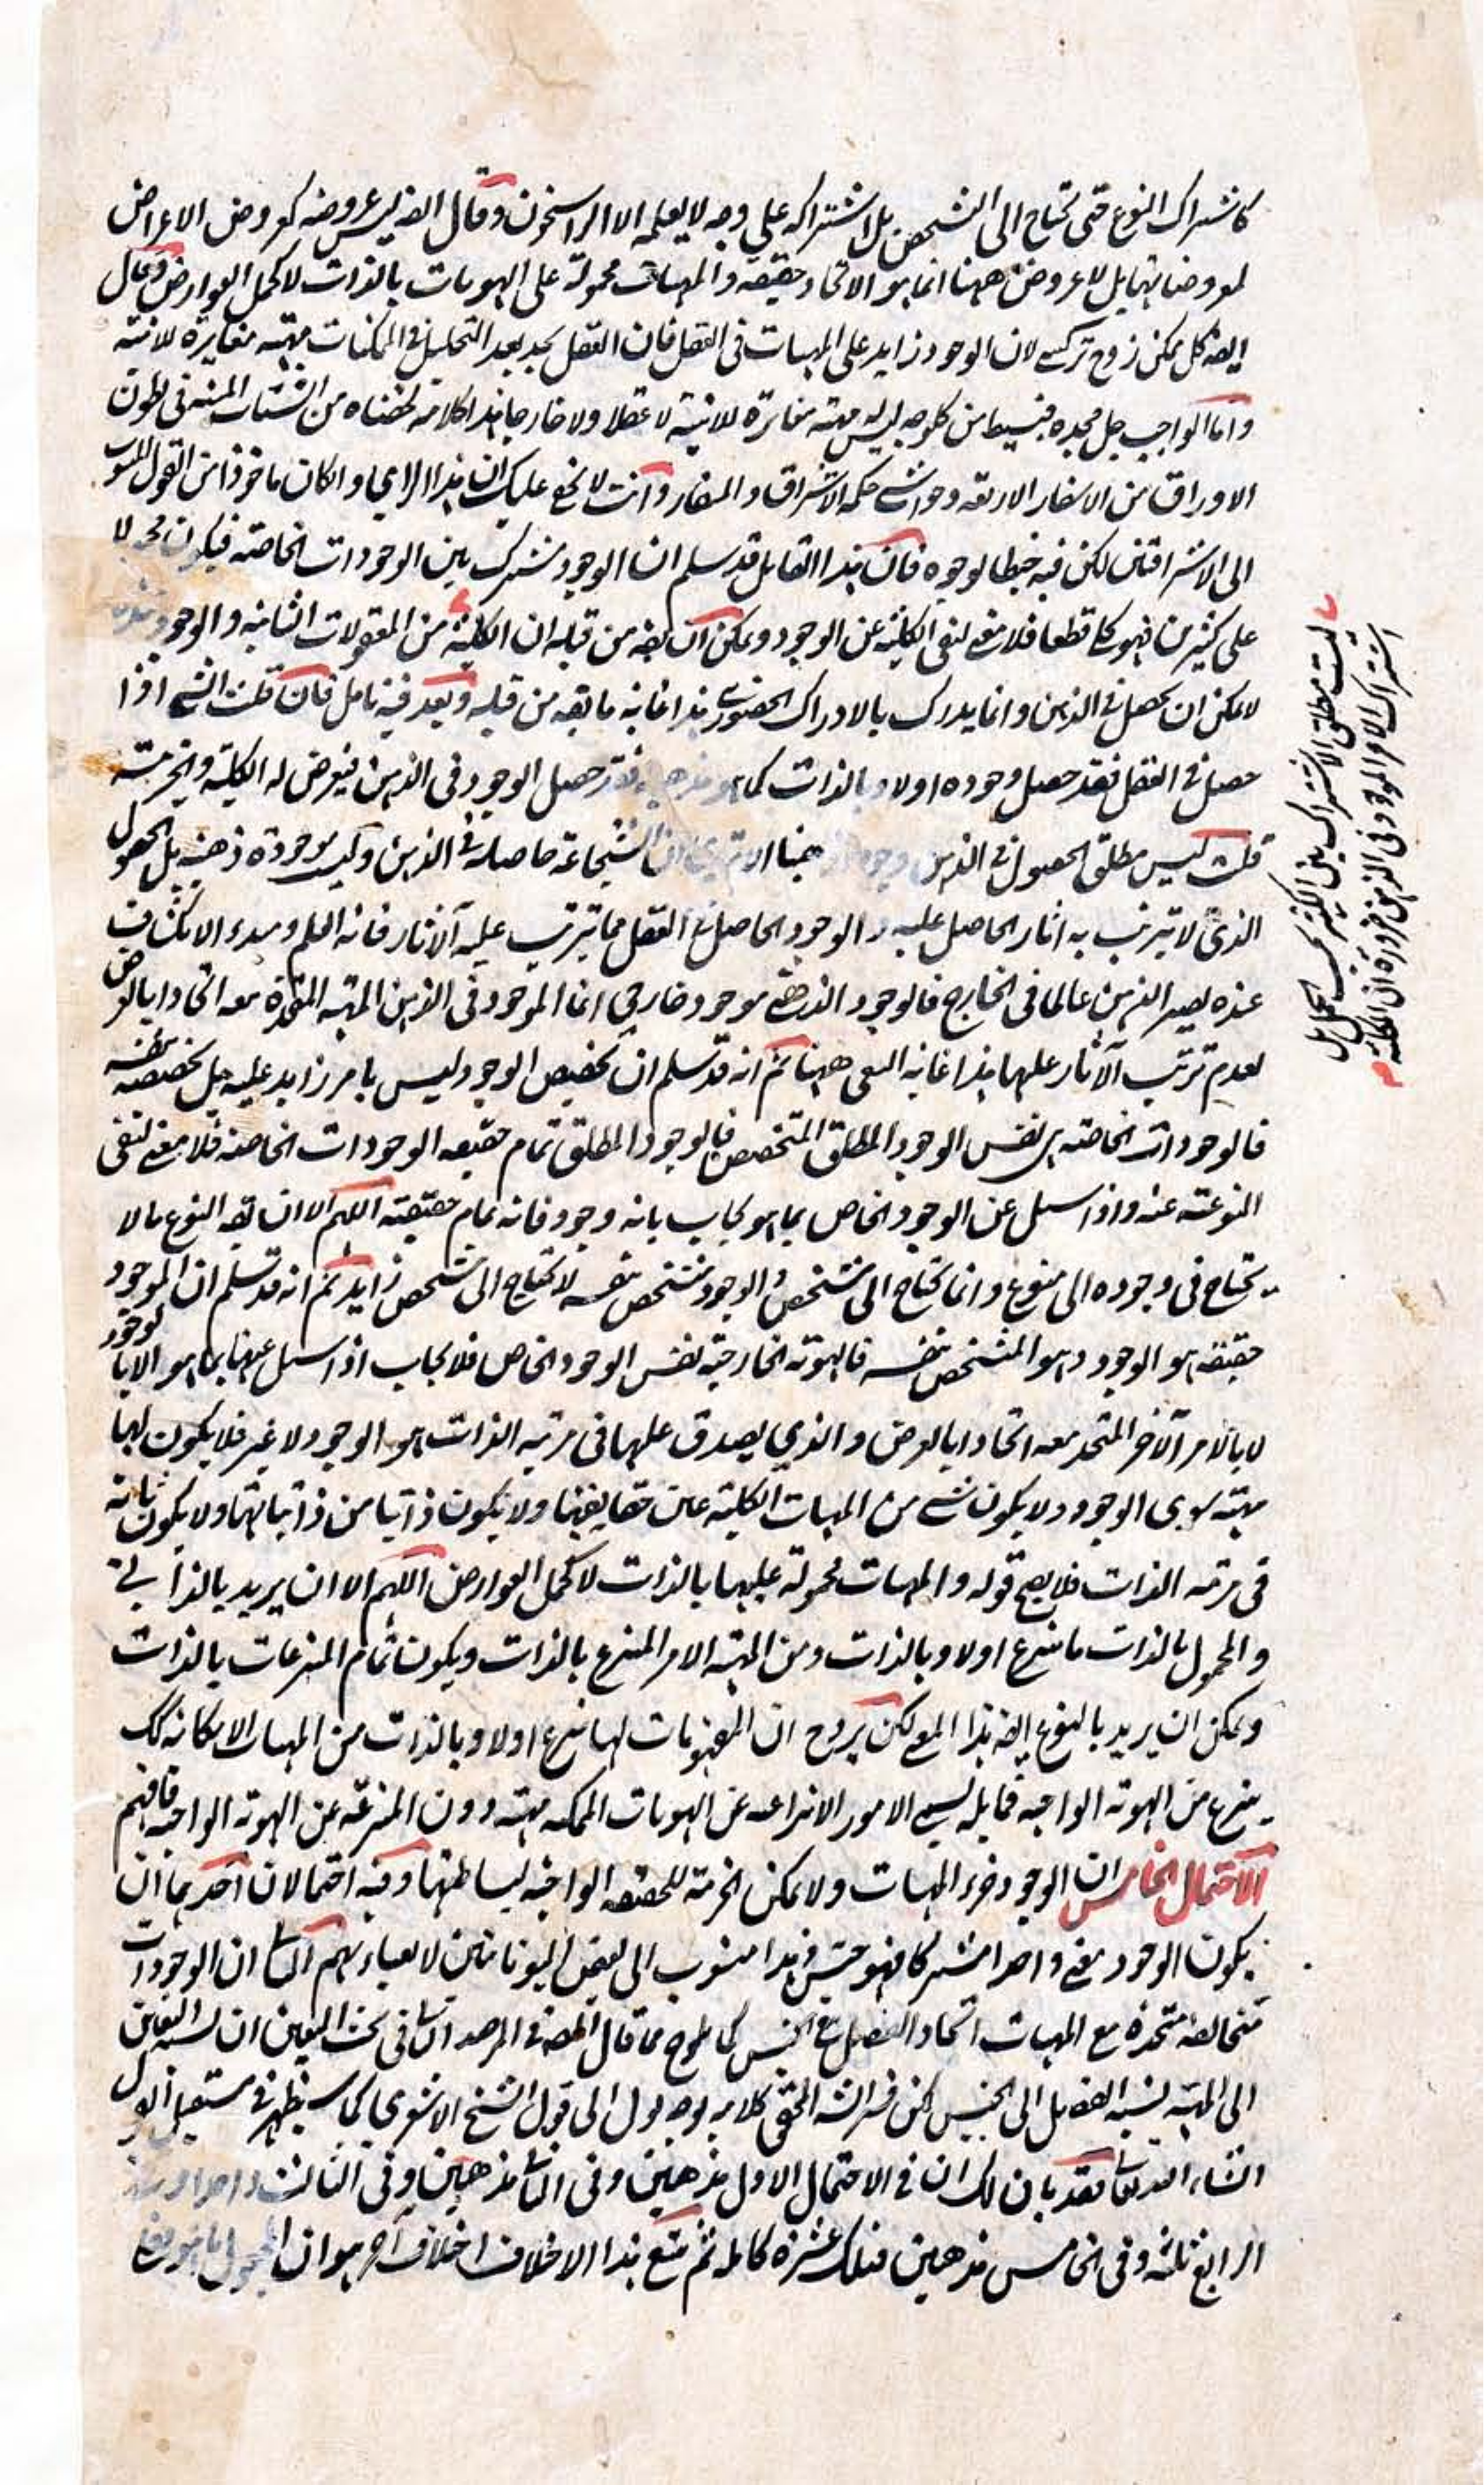 كاشتراك النوع حتى تحتاج الى التشخص بل اشتراكه على وجه لا يعلمه الا الراسخون وقال ايضا ليس عروضه كعروض الاعراض
لمعروضاتها بل لا عروض ههنا انما هو الاتحاد حقيقة والمهيات محمولة على الهويات بالذات لا كحمل العوارض وقال
ايضه كل ممكن زوج تركيبي لان الوجود زايد على المهيات في العقل فان العقل يجد بعد التحليل في الممكنات مهية مغايرة للانية
واما الواجب جل مجده فبسيط من كل وجه ليس له مهية مغايرة للانية لا عقلا ولا خارجا هذا كلامه لخصناه من الشتات المنبث في بطون
الاوراق من الاسفار الاربعة وحواشي حكمة الاشراق والمشاعر وانت لا يخفى عليك ان هذا الراي وان كان ماخوذا من القول المنسوب
الى الاشراقيين لكن فيه خبط لوجوه فان هذا القايل قد سلم ان الوجود مشترك بين الوجودات الخاصة فيكون محمولا
على كثيرين فهو كلي قطعا فلا معنى لنفي الكلية عن الوجود ويمكن ان يقه من قبله ان الكلية من المعقولات الثانية والوجود
لا يمكن ان يحصل في الذهن وانما يدرك بالادراك الحضوري هذا غاية ما يقه من قبله وبعد فيه تامل فان قلت الشي اذا
حصل في العقل فقد حصل وجوده اولا وبالذات كما هو مذهبه فقد حصل الوجود في الذهن فيعرض له الكلية والجزئية
قلت ليس مطلق الحصول في الذهن وجودا ذهنيا الا ترى ان الشجاعة حاصلة في الذهن وليست موجودة ذهنية بل الحصول
الذي لا يترتب به اثار الحاصل عليه والوجود الحاصل في العقل مما يترتب عليه الآثار فانه العلم ومبدء الانكشاف
عنده يصير الذهن عالما في الخارج فالوجود الذهني موجود خارجي انما الموجود في الذهن المهية المتحدة معه اتحادا بالعرض
لعدم ترتب الآثار عليها هذا غاية السعي ههنا ثم انه قد سلم ان تخصيص الوجود ليس بامر زايد عليه بل تخصيصه بنفسه
فالوجودات الخاصة هي نفس الوجود المطلق المتخصص فالوجود المطلق تمام حقيقة الوجودات الخاصة فلا معنى لنفي
النوعية عنه واذا سئل عن الوجود الخاص بما هو يجاب بانه وجود فانه تمام حقيقته اللهم الا ان يقه النوع ما لا
يحتاج في وجوده الى منوع وانما يحتاج الى مشخص والوجود متشخص بنفسه لا يحتاج الى مشخص زايد ثم انه قد سلم ان الموجود
حقيقة هو الوجود وهو المتشخص بنفسه فالهوية الخارجية نفس الوجود الخاص فلا يجاب اذا سئل عنها بما هو الا بالوجود
لا بالامر الآخر المتحد معه اتحادا بالعرض والذي يصدق عليها في مرتبة الذات هو الوجود لا غير فلا يكون لها
مهية سوى الوجود ولا يكون شي من المهيات الكلية عين حقايقها ولا يكون ذاتيا من ذاتياتها ولا يكون ثابتة
في مرتبة الذات فلا يصح قوله والمهيات محمولة عليها بالذات لا كحمل العوارض اللهم الا ان يريد بالذاتي
والمحمول بالذات ما ينتزع اولا وبالذات ومن المهية الامر المنتزع بالذات ويكون تمام المنتزعات بالذات
ويمكن ان يريد بالنوع ايضه هذا المعنى لكن يرد ح ان المفهومات لها ينتزع اولا وبالذات من المهيات الامكانية كك
ينتزع من الهوية الواجبة فما باله يسمي الامور الانتزاعية عن الهويات الممكنة مهية دون المنتزعة عن الهوية الواجبة فافهم
الاحتمال الخامس ان الوجود جزء المهيات ولا يمكن الجزئية للحقيقة الواجبة لبساطتها وفيه احتمالان احدهما ان
يكون الوجود معنى واحدا مشتركا فهو جنس وهذا منسوب الى بعض اليونانيين لا يعباء بهم الثاني ان الوجودات
متخالفة متحدة مع المهيات اتحاد الفصل مع الجنس كما يلوح مما قال المصه في المرصد الثاني في بحث التعين ان نسبة التعين
الى المهية نسبة الفصل الى الجنس لكن فسر الشه المحقق كلامه بوجه يؤل الى قول الشيخ الاشعري كما سيظهر في مستقبل القول
انشاء الله تعالى فقد بان لك ان في الاحتمال الاول مذهبين وفي الثاني مذهبين وفي الثالث واحدا وفي
الرابع ثلثة وفي الخامس مذهبين فتلك عشرة كاملة ثم يتبع هذا الاختلاف اختلاف آخر هو ان المجعول
ليست مطلق الاشتراك بين الكثيرين بحسب الحمل بل
اشتراك الامر الموجود في الذهن ضرورة ان الكلية